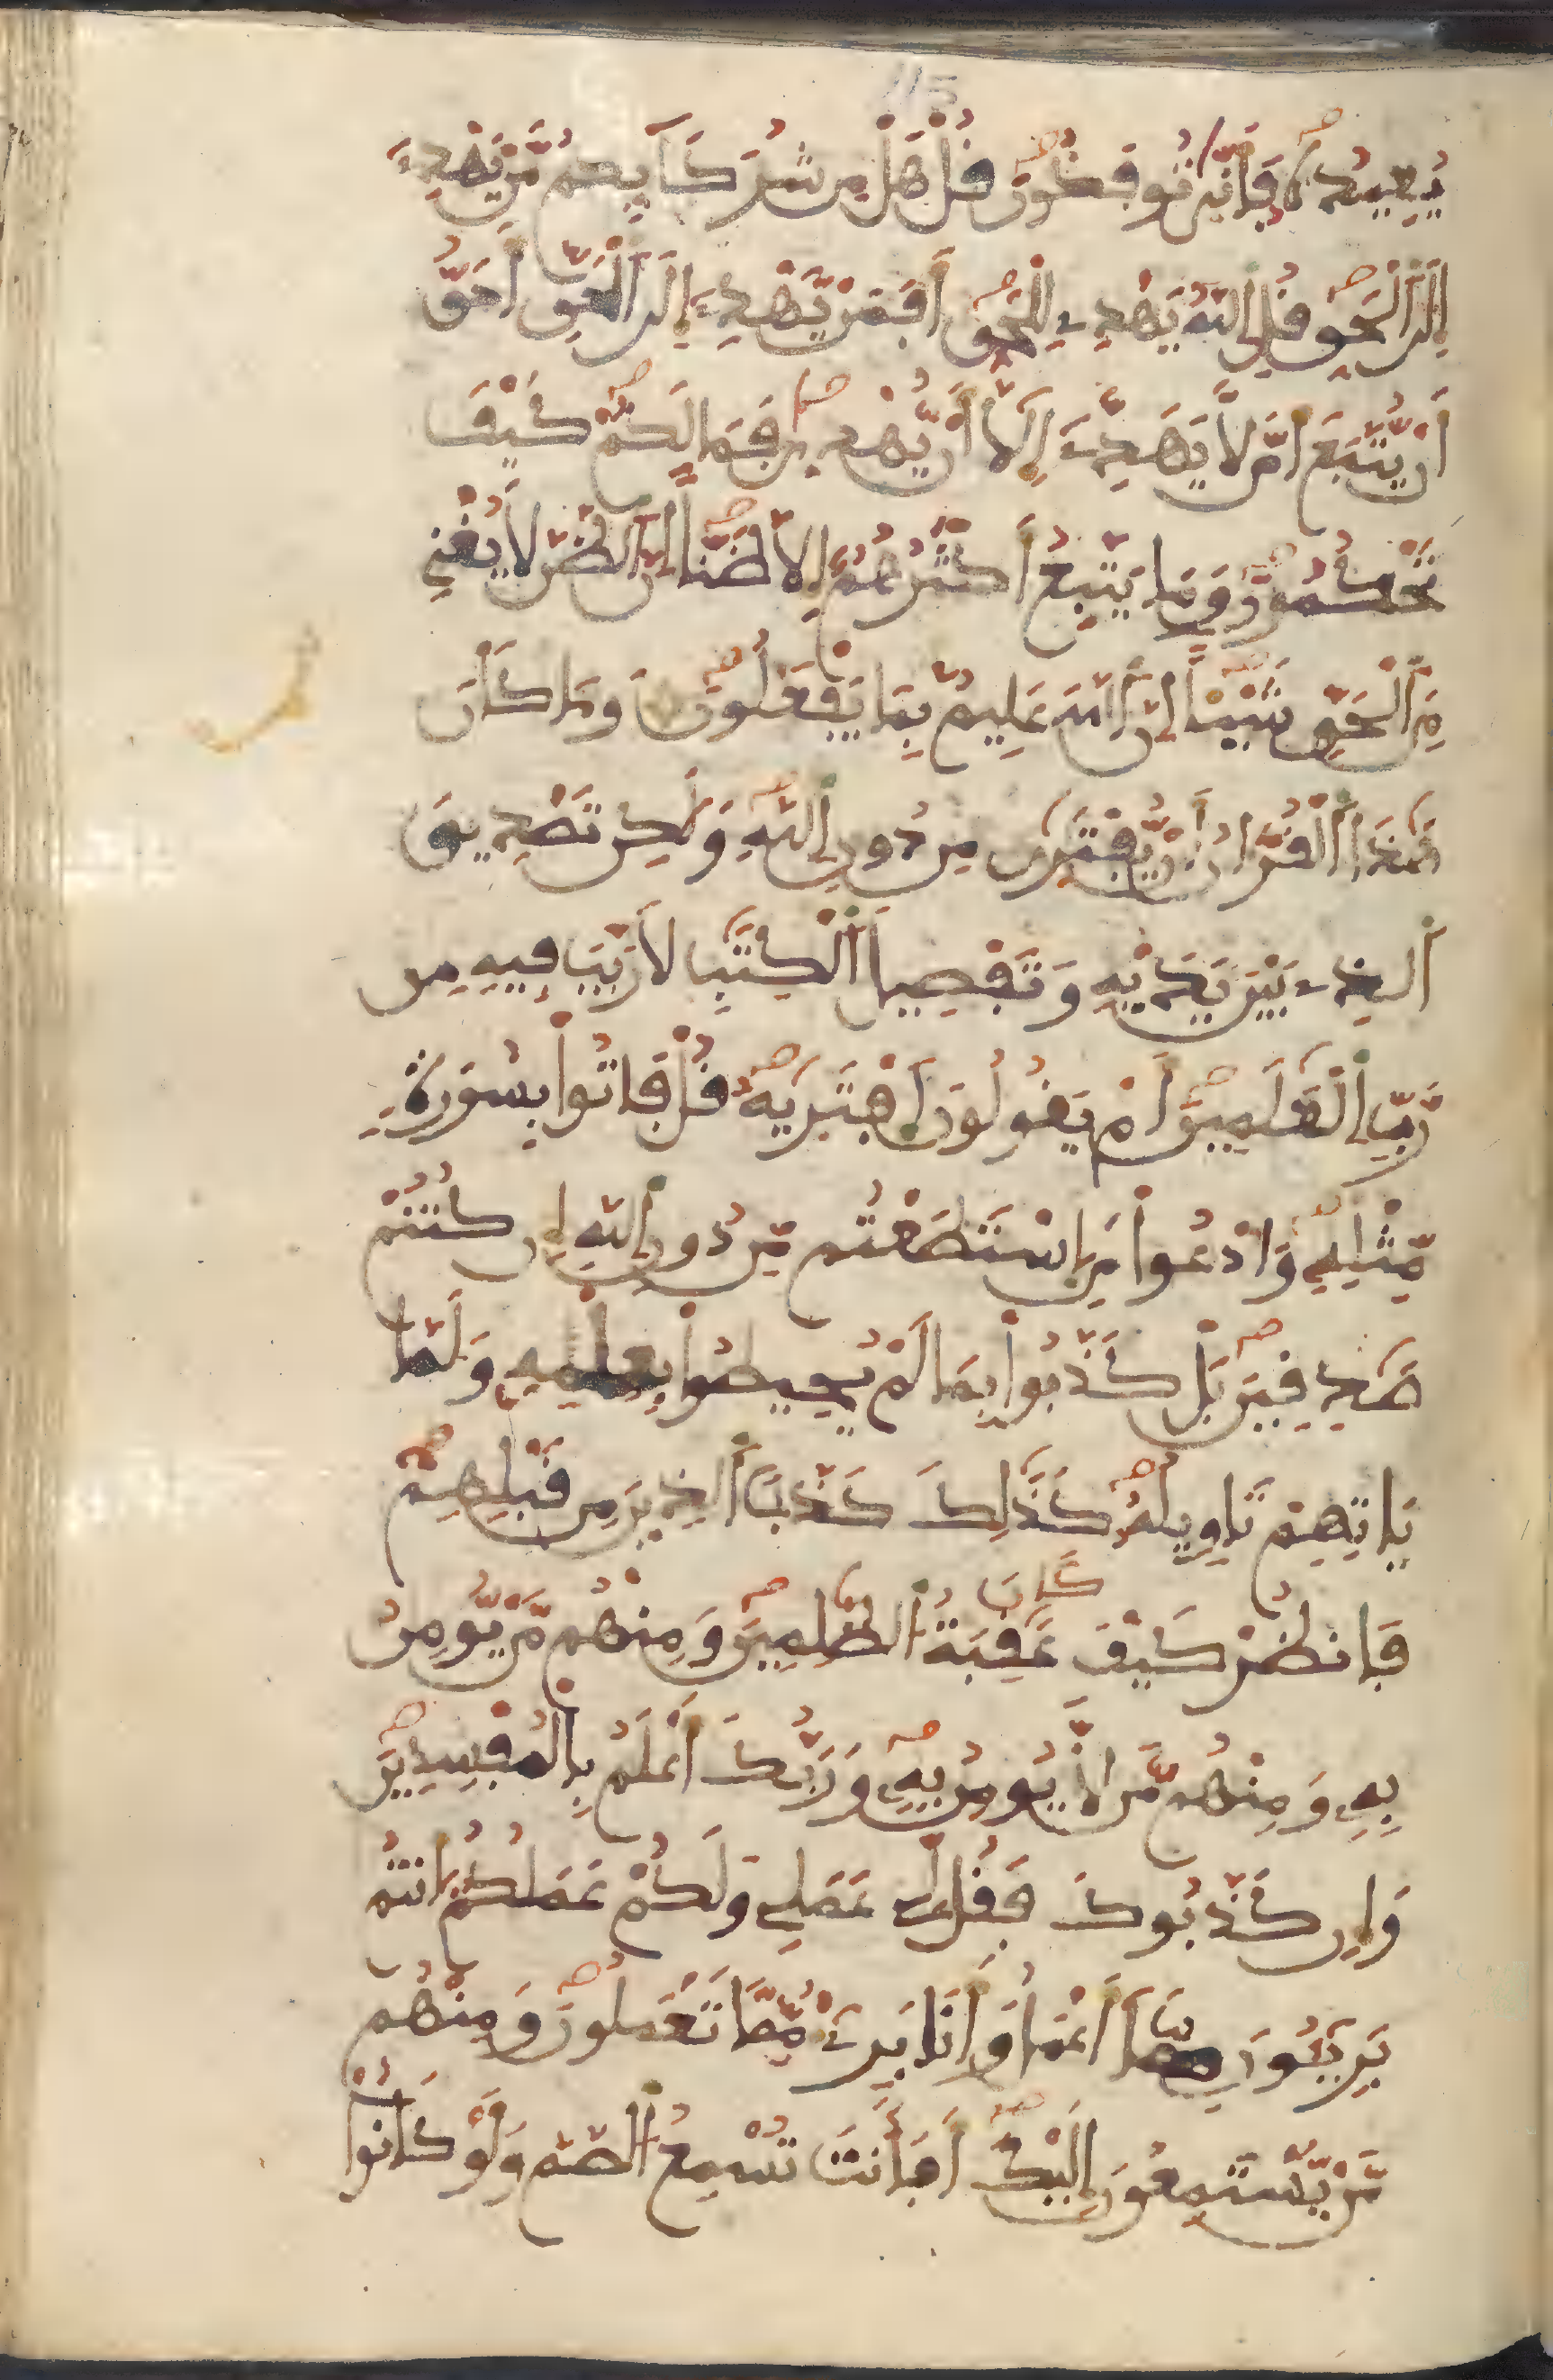 115
يُعِيدُهُۥ فَأَنّ۪يٰ تُوفَكُونَ قُلْ هَلْ مِن شُرَكَآئِكُم مَّنْ يَّهْدِےٓ
إِلَي اَ۬لْحَقِّ قُلِ اِ۬للَّهُ يَهْدِے لِلْحَقِّ أَفَمَنْ يَّهْدِےٓ إِلَي اَ۬لْحَقِّ أَحَقُّ
أَنْ يُّتَّبَعَ أَمَّن لَّا يَهَدِّےٓ إِلَّآ أَنْ يُّهْد۪يٰ فَمَا لَكُمْ كَيْفَ
تَحْكُمُونَ وَمَا يَتَّبِعُ أَكْثَرُهُمُۥٓ إِلَّا ظَنّاً إِنَّ اَ۬لظَّنَّ لَا يُغْنِے
مِنَ اَ۬لْحَقِّ شَيْـٔاً إِنَّ اَ۬للَّهَ عَلِيمٌۢ بِمَا يَفْعَلُونَ وَمَا كَانَ
هَٰذَا اَ۬لْقُرْءَانُ أَنْ يُّفْتَر۪يٰ مِن دُونِ اِ۬للَّهِ وَلَٰكِن تَصْدِيقَ
اَ۬لذِے بَيْنَ يَدَيْهِ وَتَفْصِيلَ اَ۬لْكِتَٰبِ لَا رَيْبَ فِيهِ مِن
رَّبِّ اِ۬لْعَٰلَمِينَ أَمْ يَقُولُونَ اَ۪فْتَر۪يٰهُ قُلْ فَاتُواْ بِسُورَةٖ
مِّثْلِهِۦ وَادْعُواْ مَنِ اِ۪سْتَطَعْتُم مِّن دُونِ اِ۬للَّهِ إِن كُنتُمْ
صَٰدِقِينَ بَلْ كَذَّبُواْ بِمَا لَمْ يُحِيطُواْ بِعِلْمِهِۦ وَلَمَّا
يَاتِهِمْ تَاوِيلُهُۥ كَذَٰلِكَ كَذَّبَ اَ۬لذِينَ مِن قَبْلِهِمْ
فَانظُرْ كَيْفَ كَانَ عَٰقِبَةُ اُ۬لظَّٰلِمِينَ وَمِنْهُم مَّنْ يُّومِنُ
بِهِۦ وَمِنْهُم مَّن لَّا يُومِنُ بِهِۦ وَرَبُّكَ أَعْلَمُ بِالْمُفْسِدِينَ
وَإِن كَذَّبُوكَ فَقُل لِّے عَمَلِے وَلَكُمْ عَمَلُكُمُۥٓ أَنتُم
بَرِيٓـُٔونَ مِمَّآ أَعْمَلُ وَأَنَا بَرِےٓءٌ مِّمَّا تَعْمَلُونَ وَمِنْهُم
مَّنْ يَّسْتَمِعُونَ إِلَيْكَ أَفَأَنتَ تُسْمِعُ اُ۬لصُّمَّ وَلَوْ كَانُواْ